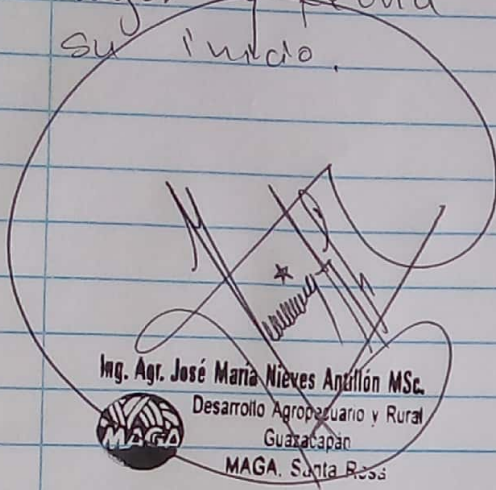 su inicio.
Ing. Agr. José María Nieves Antillón MSc.
Desarrollo Agropecuario y Rural
Guazacapán
MAGA
MAGA. Santa Rosa